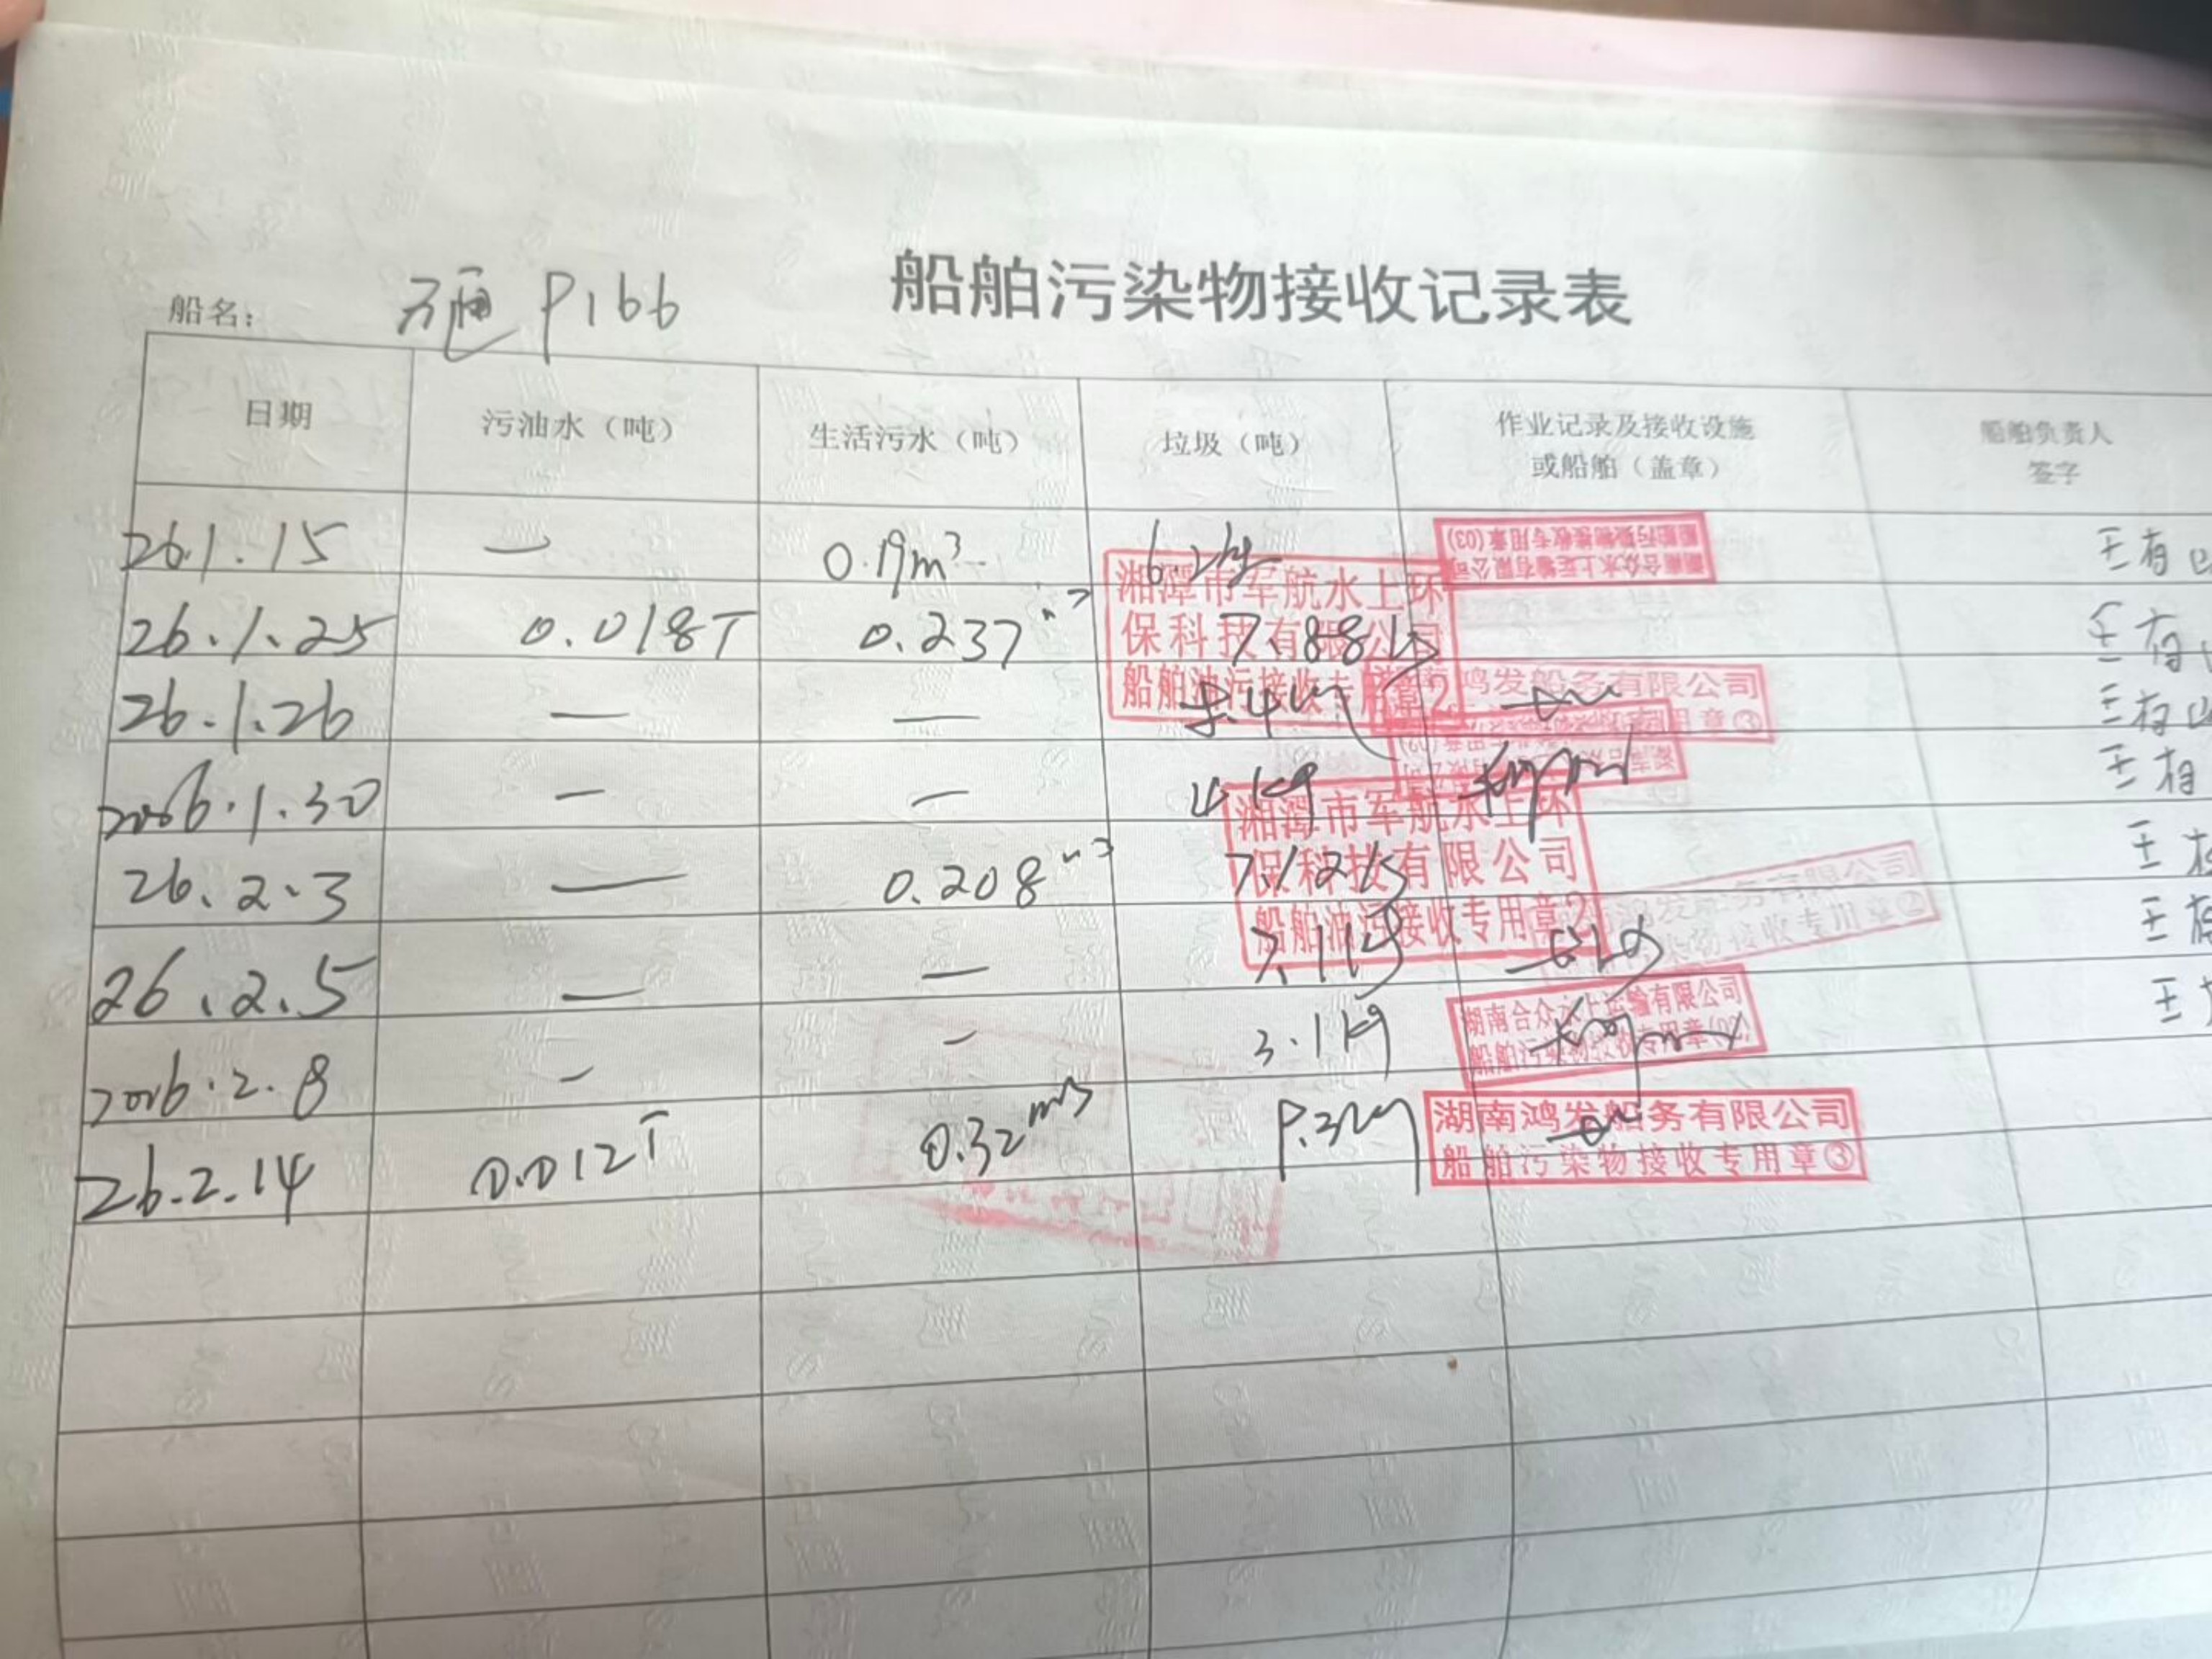 船舶污染物接收记录表
船名： 万通 P166
日期 污油水（吨） 生活污水（吨） 垃圾（吨） 作业记录及接收设施或船舶（盖章） 船舶负责人签字
26.1.15 — 0.19m³ 6.2kg 王有
湖南合众水上运输有限公司
船舶污染物接收专用章(03)
26.1.25 0.018T 0.237m³ 7.88kg 王有
湘潭市军航水上环
保科技有限公司
船舶油污接收专用章2
26.1.26 — — 王有
鸿发船务有限公司
用章③
2026.1.30 — — 4kg 王有
26.2.3 — 0.208m³ 7.12kg 王有
湘潭市军航水上环
保科技有限公司
船舶油污接收专用章2
26.2.5 — — 7.1kg 王有
鸿发船务有限公司
染物接收专用章②
2026.2.8 — — 3.1kg 王
湖南合众水上运输有限公司
船舶污染物接收专用章(02)
26.2.14 0.012T 0.32m³
湖南鸿发船务有限公司
船舶污染物接收专用章③